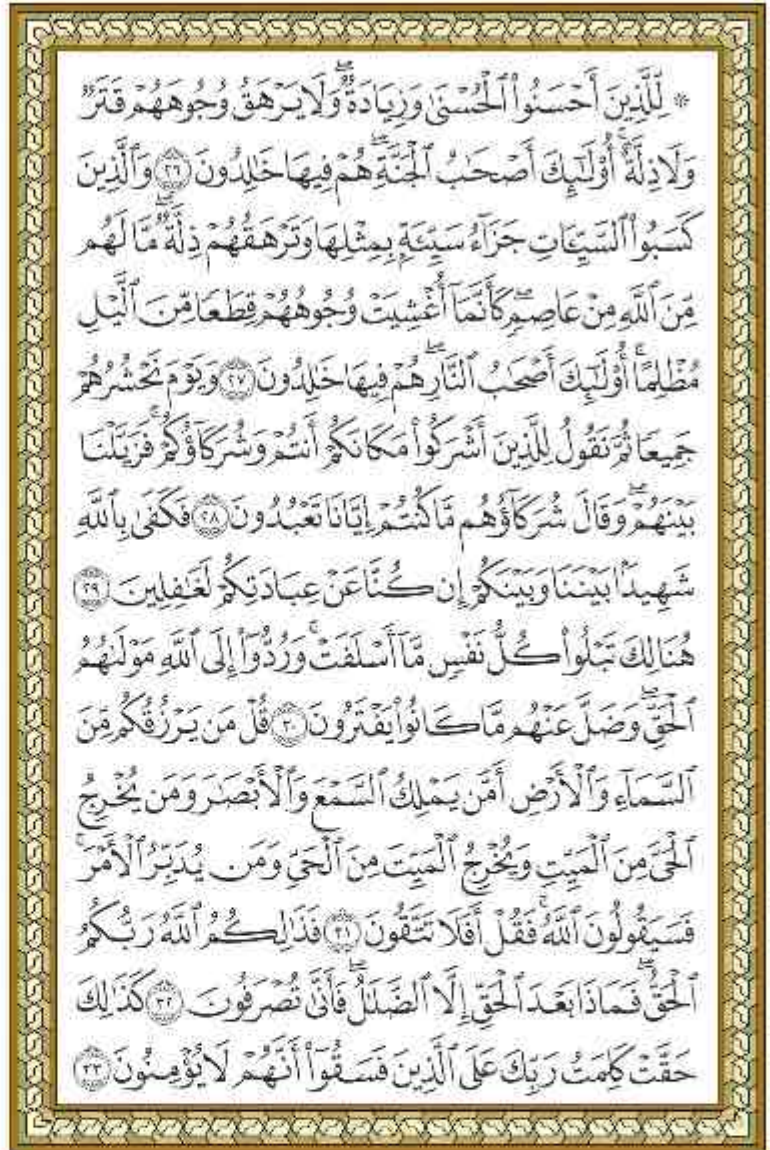 ۞ لِّلَّذِينَ أَحْسَنُوا۟ ٱلْحُسْنَىٰ وَزِيَادَةٌۭ ۖ وَلَا يَرْهَقُ وُجُوهَهُمْ قَتَرٌۭ
وَلَا ذِلَّةٌ ۚ أُو۟لَـٰٓئِكَ أَصْحَـٰبُ ٱلْجَنَّةِ ۖ هُمْ فِيهَا خَـٰلِدُونَ ٢٦ وَٱلَّذِينَ
كَسَبُوا۟ ٱلسَّيِّـَٔاتِ جَزَآءُ سَيِّئَةٍۭ بِمِثْلِهَا وَتَرْهَقُهُمْ ذِلَّةٌۭ ۖ مَّا لَهُم
مِّنَ ٱللَّهِ مِنْ عَاصِمٍۢ ۖ كَأَنَّمَآ أُغْشِيَتْ وُجُوهُهُمْ قِطَعًۭا مِّنَ ٱلَّيْلِ
مُظْلِمًا ۚ أُو۟لَـٰٓئِكَ أَصْحَـٰبُ ٱلنَّارِ ۖ هُمْ فِيهَا خَـٰلِدُونَ ٢٧ وَيَوْمَ نَحْشُرُهُمْ
جَمِيعًۭا ثُمَّ نَقُولُ لِلَّذِينَ أَشْرَكُوا۟ مَكَانَكُمْ أَنتُمْ وَشُرَكَآؤُكُمْ ۚ فَزَيَّلْنَا
بَيْنَهُمْ ۖ وَقَالَ شُرَكَآؤُهُم مَّا كُنتُمْ إِيَّانَا تَعْبُدُونَ ٢٨ فَكَفَىٰ بِٱللَّهِ
شَهِيدًۢا بَيْنَنَا وَبَيْنَكُمْ إِن كُنَّا عَنْ عِبَادَتِكُمْ لَغَـٰفِلِينَ ٢٩
هُنَالِكَ تَبْلُوا۟ كُلُّ نَفْسٍۢ مَّآ أَسْلَفَتْ ۚ وَرُدُّوٓا۟ إِلَى ٱللَّهِ مَوْلَىٰهُمُ
ٱلْحَقِّ ۖ وَضَلَّ عَنْهُم مَّا كَانُوا۟ يَفْتَرُونَ ٣٠ قُلْ مَن يَرْزُقُكُم مِّنَ
ٱلسَّمَآءِ وَٱلْأَرْضِ أَمَّن يَمْلِكُ ٱلسَّمْعَ وَٱلْأَبْصَـٰرَ وَمَن يُخْرِجُ
ٱلْحَىَّ مِنَ ٱلْمَيِّتِ وَيُخْرِجُ ٱلْمَيِّتَ مِنَ ٱلْحَىِّ وَمَن يُدَبِّرُ ٱلْأَمْرَ ۚ
فَسَيَقُولُونَ ٱللَّهُ ۚ فَقُلْ أَفَلَا تَتَّقُونَ ٣١ فَذَٰلِكُمُ ٱللَّهُ رَبُّكُمُ
ٱلْحَقُّ ۖ فَمَاذَا بَعْدَ ٱلْحَقِّ إِلَّا ٱلضَّلَـٰلُ ۖ فَأَنَّىٰ تُصْرَفُونَ ٣٢ كَذَٰلِكَ
حَقَّتْ كَلِمَتُ رَبِّكَ عَلَى ٱلَّذِينَ فَسَقُوٓا۟ أَنَّهُمْ لَا يُؤْمِنُونَ ٣٣